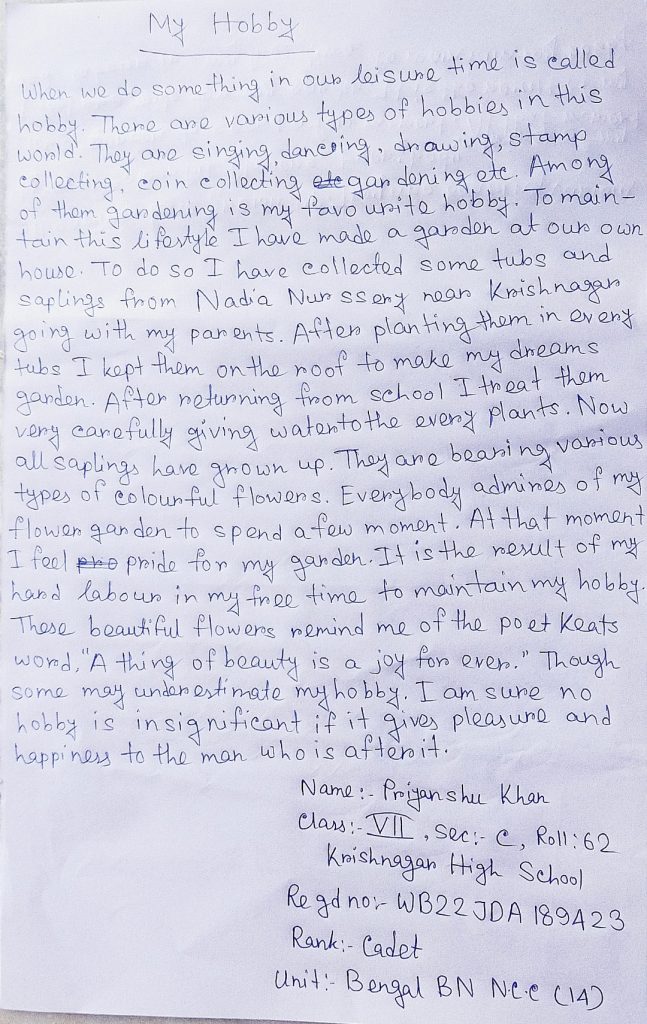 My Hobby
When we do something in our leisure time is called
hobby. There are various types of hobbies in this
world. They are singing, danceing, drawing, stamp
collecting, coin collecting etc gardening etc. Among
of them gardening is my favourite hobby. To main-
tain this lifestyle I have made a garden at our own
house. To do so I have collected some tubs and
saplings from Nadia Nurssery near Krishnagar
going with my parents. After planting them in every
tubs I kept them on the roof to make my dreams
garden. After returning from school I treat them
very carefully giving water to the every plants. Now
all saplings have grown up. They are bearing various
types of colourful flowers. Everybody admires of my
flower garden to spend a few moment. At that moment
I feel pro pride for my garden. It is the result of my
hard labour in my free time to maintain my hobby.
These beautiful flowers remind me of the poet Keats
word, "A thing of beauty is a joy for ever." Though
some may underestimate my hobby. I am sure no
hobby is insignificant if it gives pleasure and
happiness to the man who is after it.
Name:- Priyanshu Khan
Class:- VII, Sec:- C, Roll: 62
Krishnagar High School
Regd no:- WB22JDA189423
Rank:- Cadet
Unit:- Bengal BN N.C.C (14)